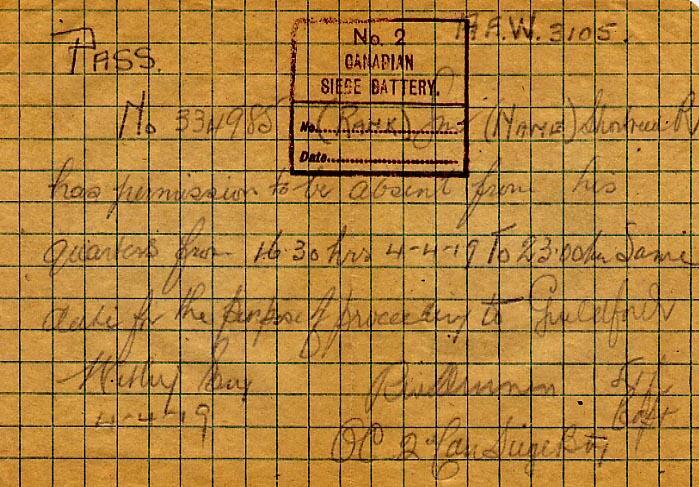 PASS.
A.F.W. 3105.
No. 2
CANADIAN
SIEGE BATTERY.
No.
Date
No 334985 (RANK) Gnr (NAME)
has permission to be absent from his
quarters from 16.30 hrs 4-4-19 To 23.00 hrs Same
date for the purpose of proceeding to Guildford
Witley Camp
4-4-19
Capt
OC 2 Can Siege Bty